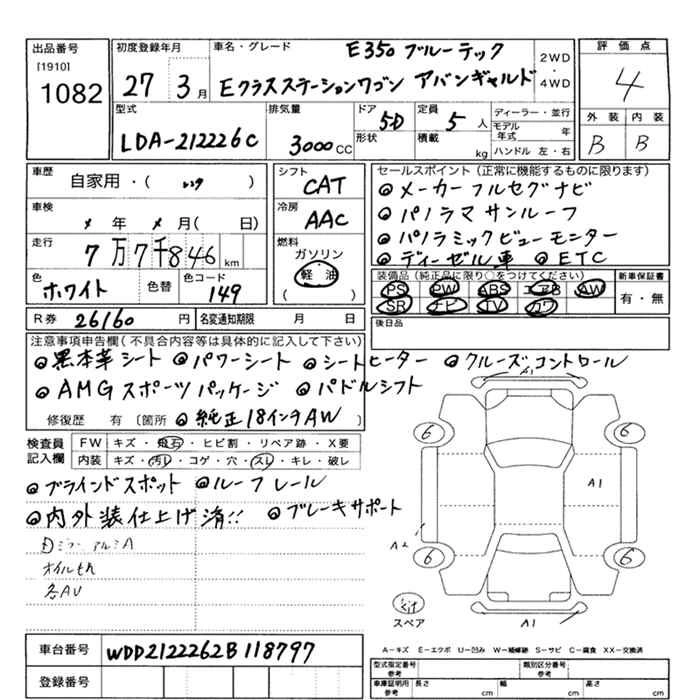 出品番号 初度登録年月 車名・グレード E350 ブルーテック 2WD 評価点
[1910]
1082 27 3月 Eクラスステーションワゴン アバンギャルド ・4WD 4
型式 排気量 ドア 5D 定員 5人 ディーラー・並行 外装 内装
LDA-212226C 3000CC 形状 積載 kg モデル年式 年 B B
ハンドル 左・右
車歴 シフト セールスポイント(正常に機能するものに限ります)
自家用・( レンタ ) CAT ◎メーカーフルセグナビ
車検 冷房 ◎パノラマサンルーフ
メ年 メ月( 日) AAC ◎パノラミックビューモニター
走行 燃料 ◎ディーゼル車 ◎ETC
7万7千846km ガソリン
軽油
( )
装備品(純正品に限り○をつけてください) 新車保証書
PS PW ABS エアB AW 有・無
SR ナビ TV カワ
色 色替 色コード
ホワイト 149
後日品
R券 26160円 名変通知期限 月 日
注意事項申告欄(不具合内容等は具体的に記入して下さい)
◎黒本革シート ◎パワーシート ◎シートヒーター ◎クルーズコントロール
◎AMGスポーツパッケージ ◎パドルシフト
修復歴 有〔箇所 ◎純正18インチAW 〕
検査員記入欄 FW キズ・飛石・ヒビ割・リペア跡・X要
内装 キズ・汚レ・コゲ・穴・スレ・キレ・破レ
◎ブラインドスポット ◎ルーフレール
◎内外装仕上げ済!! ◎ブレーキサポート
オイルもれ
各AU
A1
6 6
A1
A2
6 6
スペア
A1
A-キズ E-エクボ U-凹み W-補修跡 S-サビ C-腐食 XX-交換済
車台番号 WDD2122262B118797
登録番号
型式指定番号 参考 類別区分番号 参考
車庫証明用 参考 長さ cm 幅 cm 高さ cm